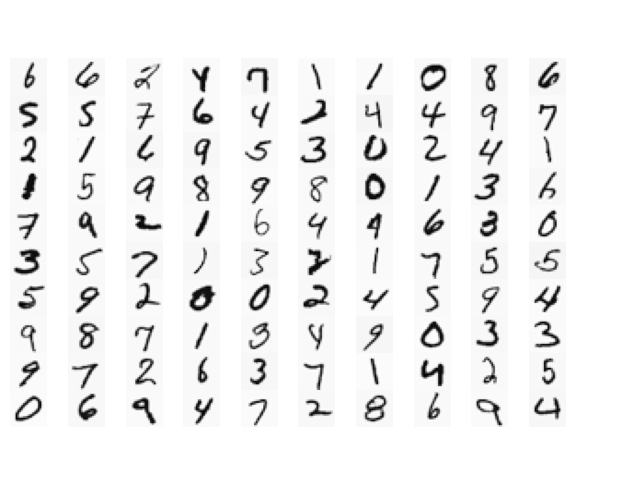 6 6 2 4 7 1 1 0 8 6
5 5 7 6 4 2 4 4 9 7
2 1 6 9 5 3 0 2 4 1
1 5 9 8 9 8 0 1 3 6
7 9 2 1 6 4 4 6 3 0
3 5 7 1 3 2 1 7 5 5
5 9 2 0 0 2 4 5 9 4
9 8 7 1 3 4 9 0 3 3
9 7 2 6 3 7 1 4 2 5
0 6 9 4 7 2 8 6 9 4